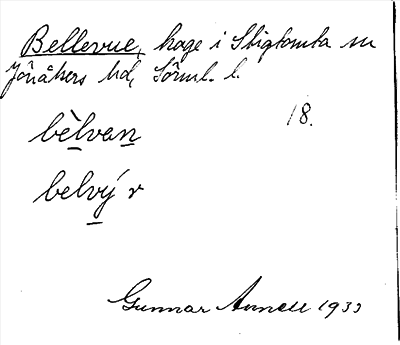 Bellevue, hage i Stigtomta sn
Jönåkers hd, Sörml. l.
18.
bèlvan
belvý r
Gunnar Annell 1933